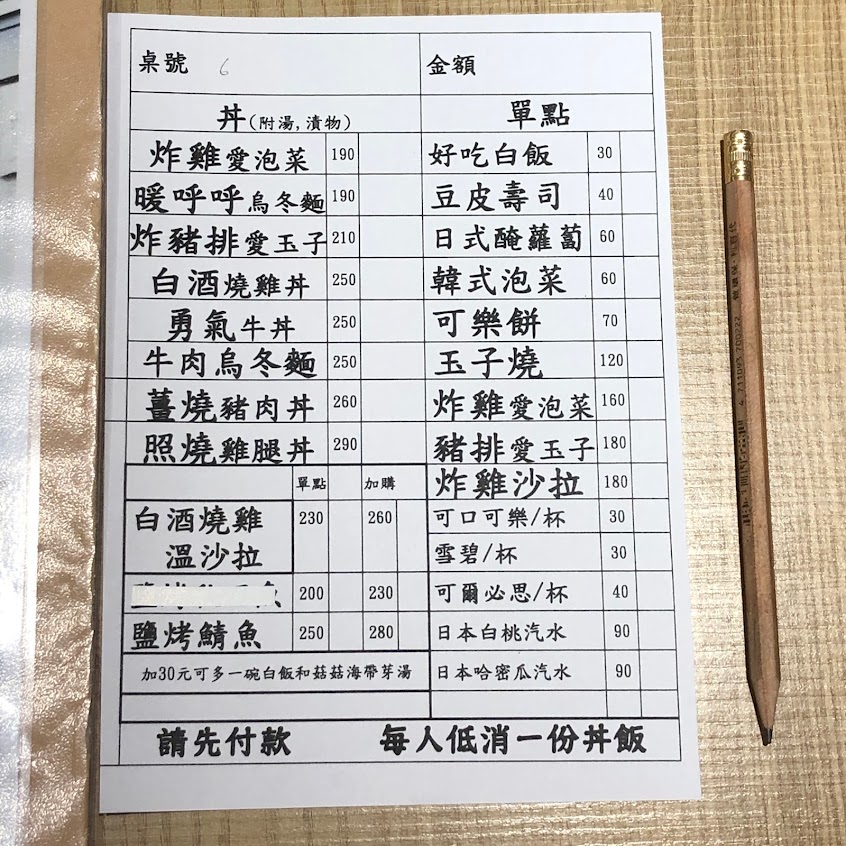 桌號 6
金額
丼(附湯,漬物)
單點
炸雞愛泡菜 190
暖呼呼烏冬麵 190
炸豬排愛玉子 210
白酒燒雞丼 250
勇氣牛丼 250
牛肉烏冬麵 250
薑燒豬肉丼 260
照燒雞腿丼 290
單點 加購
白酒燒雞 230 260
溫沙拉
200 230
鹽烤鯖魚 250 280
加30元可多一碗白飯和菇菇海帶芽湯
好吃白飯 30
豆皮壽司 40
日式醃蘿蔔 60
韓式泡菜 60
可樂餅 70
玉子燒 120
炸雞愛泡菜 160
豬排愛玉子 180
炸雞沙拉 180
可口可樂/杯 30
雪碧/杯 30
可爾必思/杯 40
日本白桃汽水 90
日本哈密瓜汽水 90
請先付款 每人低消一份丼飯